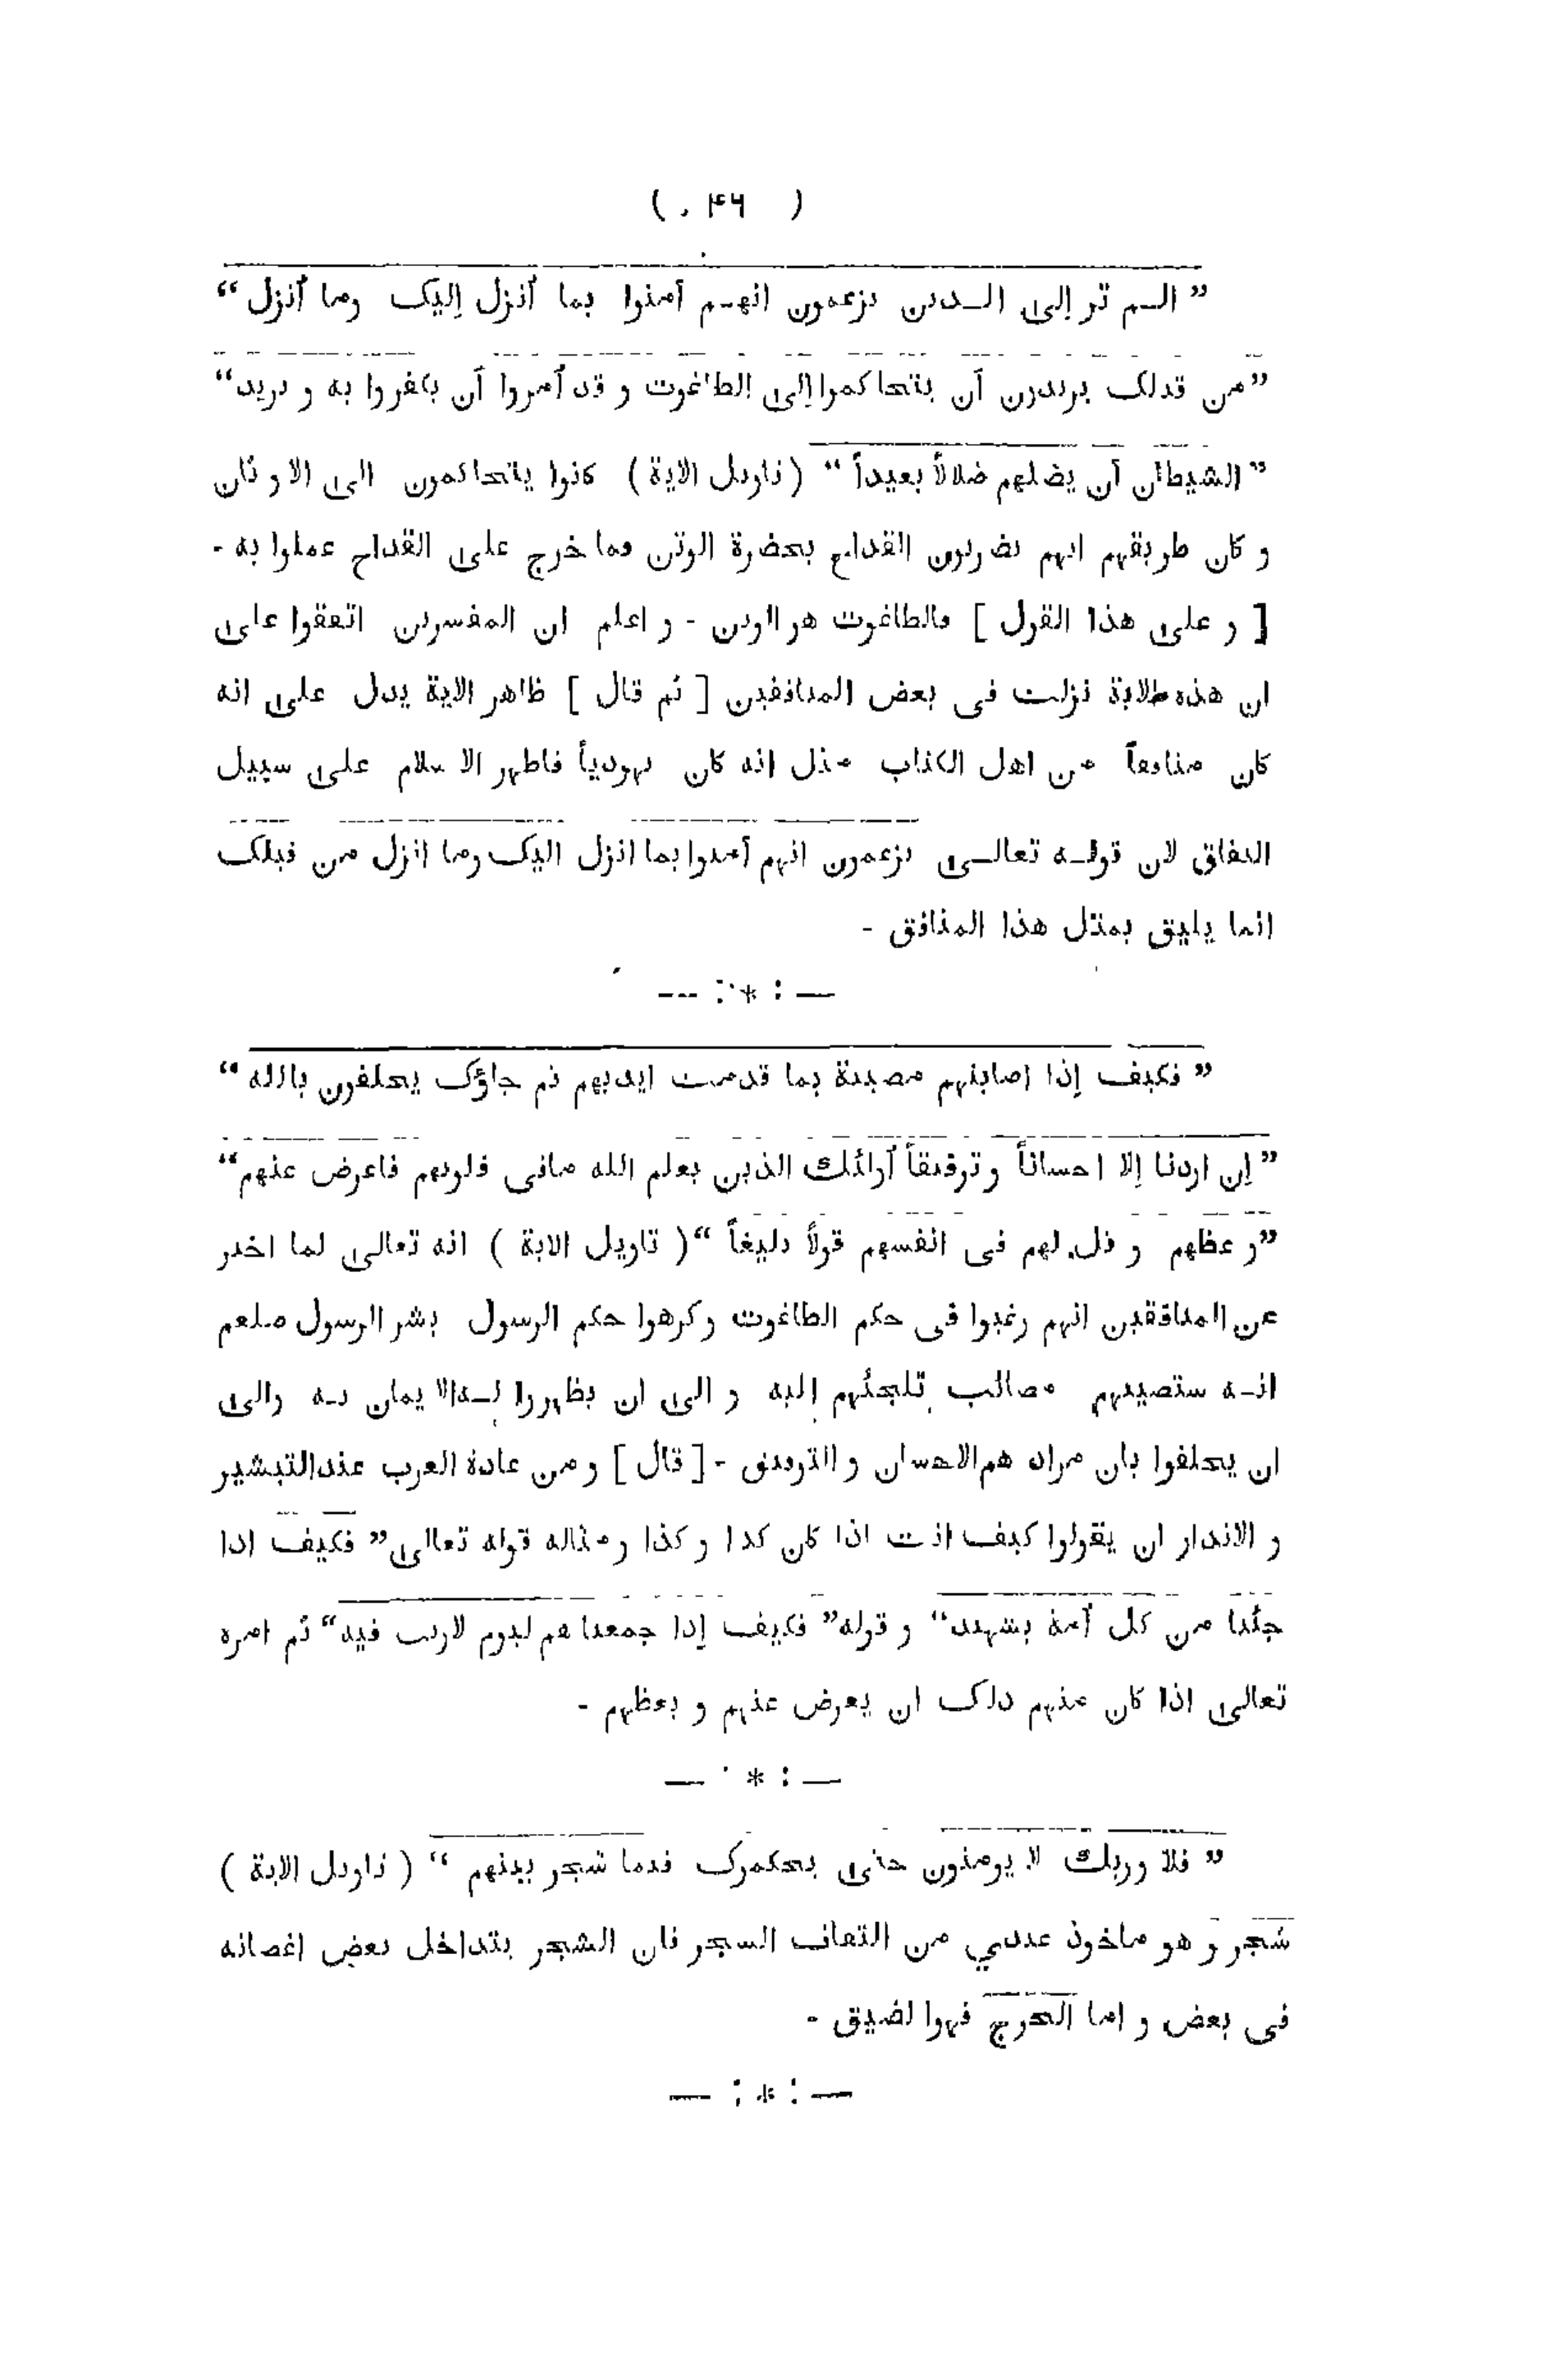 ( ۴۶ )
” الـم تر إلى الـذين يزعمون انهـم آمنوا بما أنزل إليک وما أنزل “
”من قبلک يريدون أن يتحاكموا إلى الطاغوت و قد أمروا أن يكفروا به و يريد“
” الشيطان أن يضلهم ضلالاً بعيداً “ ( تاويل الاية ) كانوا يتحاكمون الى الاوثان
و كان طريقهم انهم يضربون القداح بحضرة الوثن فما خرج على القداح عملوا به -
[ و على هذا القول ] فالطاغوت هو الوثن - و اعلم ان المفسرين اتفقوا على
ان هذه الاية نزلت فى بعض المنافقين [ ثم قال ] ظاهر الاية يدل على انه
كان منافقاً من اهل الكتاب مثل انه كان يهودياً فاظهر الاسلام على سبيل
النفاق لان قولـه تعالـى يزعمون انهم آمنوا بما انزل اليک وما انزل من قبلک
انما يليق بمثل هذا المنافق -
— : * : —
” فكيف إذا اصابتهم مصيبة بما قدمت ايديهم ثم جاؤک يحلفون بالله “
” إن اردنا إلا احساناً و توفيقاً أولئك الذين يعلم الله مافى قلوبهم فاعرض عنهم“
”و عظهم و قل لهم فى انفسهم قولاً بليغاً “ ( تاويل الاية ) انه تعالى لما اخبر
عن المنافقين انهم رغبوا فى حكم الطاغوت و كرهوا حكم الرسول بشر الرسول صلعم
انـه ستصيبهم مصائب تلجئهم إليه و الى ان يظهروا لـه الا يمان بـه والى
ان يحلفوا بان مراد هم الاحسان و التوفيق - [ قال ] و من عادة العرب عند التبشير
و الانذار ان يقولوا كيف انت اذا كان كذا و كذا و مثاله قوله تعالى” فكيف اذا
جئنا من كل أمة بشهيد“ و قوله” فكيف إذا جمعنا هم ليوم لاريب فيه“ ثم امره
تعالى اذا كان منهم ذلک ان يعرض عنهم و يعظهم -
— : * : —
” فلا وربك لا يومنون حتى يحكموک فيما شجر بينهم “ ( تاويل الاية )
شجر و هو ماخوذ عندي من التفاف الشجر فان الشجر يتداخل بعض اغصانه
فى بعض و اما الحرج فهوا لضيق -
— : * : —